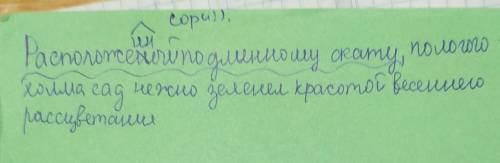 сори)).
нн
Расположеный по длинному скату, пологого
холма сад нежно зеленел красотой весеннего
рассцветания